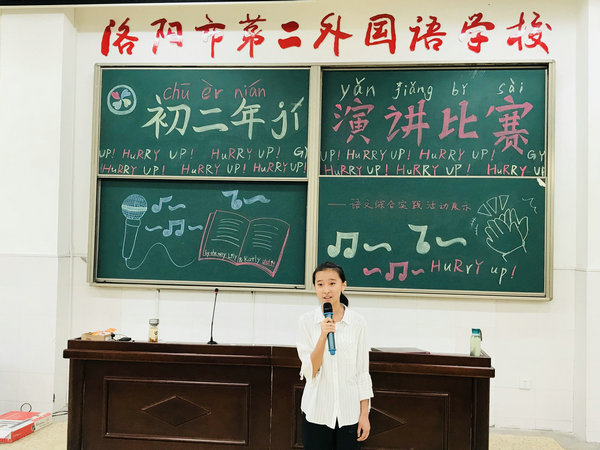 洛阳市第二外国语学校
chū èr nián
初二年
yǎn jiǎng bǐ sài
演讲比赛
UP! HuRRY UP! HuRRY UP! GY
HuRRY UP! HuRRY UP! HuRRY UP!
UP! HuRRY UP! HuRRY UP! GY
HuRRY UP! HuRRY UP! HuRRY UP!
——语文综合实践活动展示
HuRRy up!